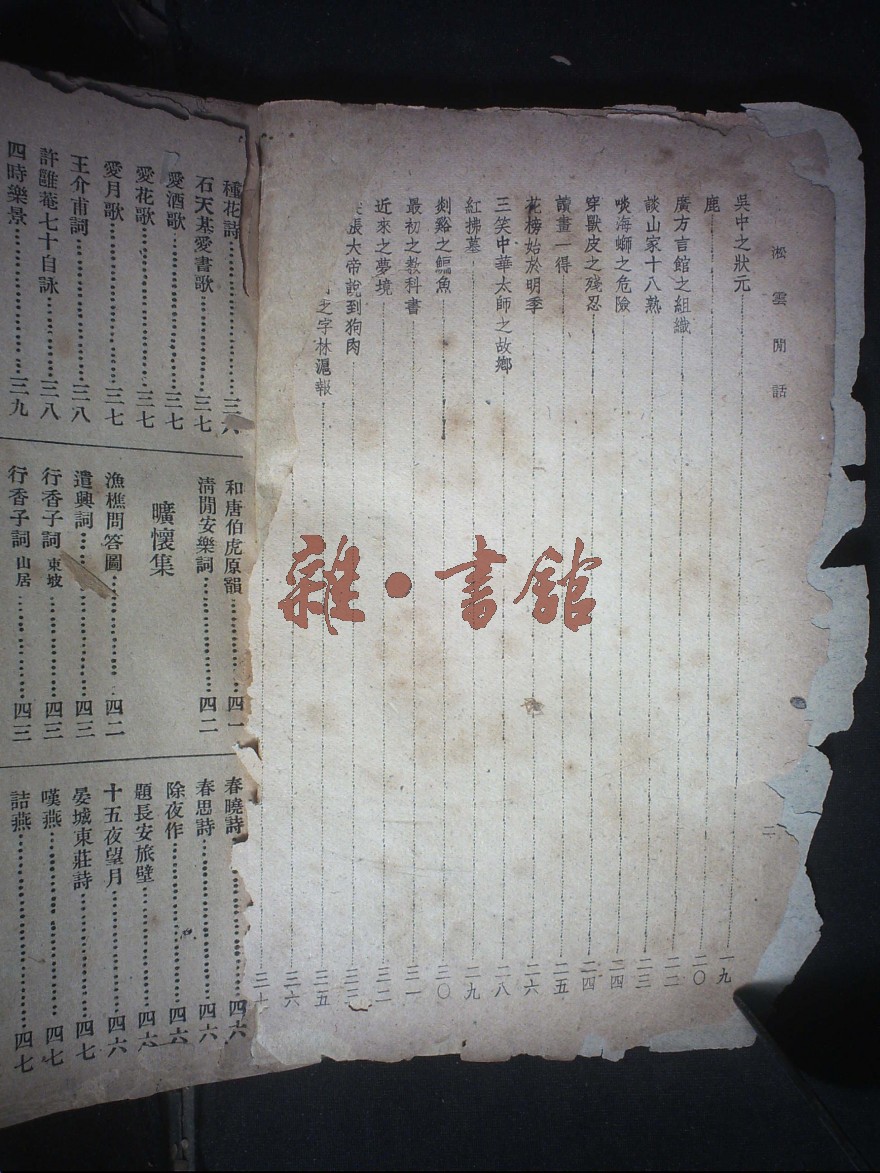 淞雲閒話
吳中之狀元 一九
鹿 二〇
廣方言館之組織 二二
談山家十八熟 二三
啖海螄之危險 二四
穿獸皮之殘忍 二四
讀畫一得 二五
花榜始於明季 二六
三笑中華太師之故鄉 二八
紅拂墓 二九
剡谿之鯿魚 三〇
最初之教科書 三一
近來之夢境 三二
張大帝說到狗肉 三三
之字林滬報 三五
三六
二
種花詩 三六
石天基愛書歌 三七
愛酒歌 三七
愛花歌 三七
愛月歌 三七
王介甫詞 三八
許雖菴七十自詠 三八
四時樂景 三九
和唐伯虎原韻 四一
清閒安樂詞 四二
曠懷集
漁樵問答圖 四二
遣興詞 四三
行香子詞 東坡 四三
行香子詞 山居 四三
春曉詩 四六
春思詩 四六
除夜作 四六
題長安旅壁 四六
十五夜望月 四六
晏城東莊詩 四七
嘆燕 四七
詰燕 四七
雜·書館